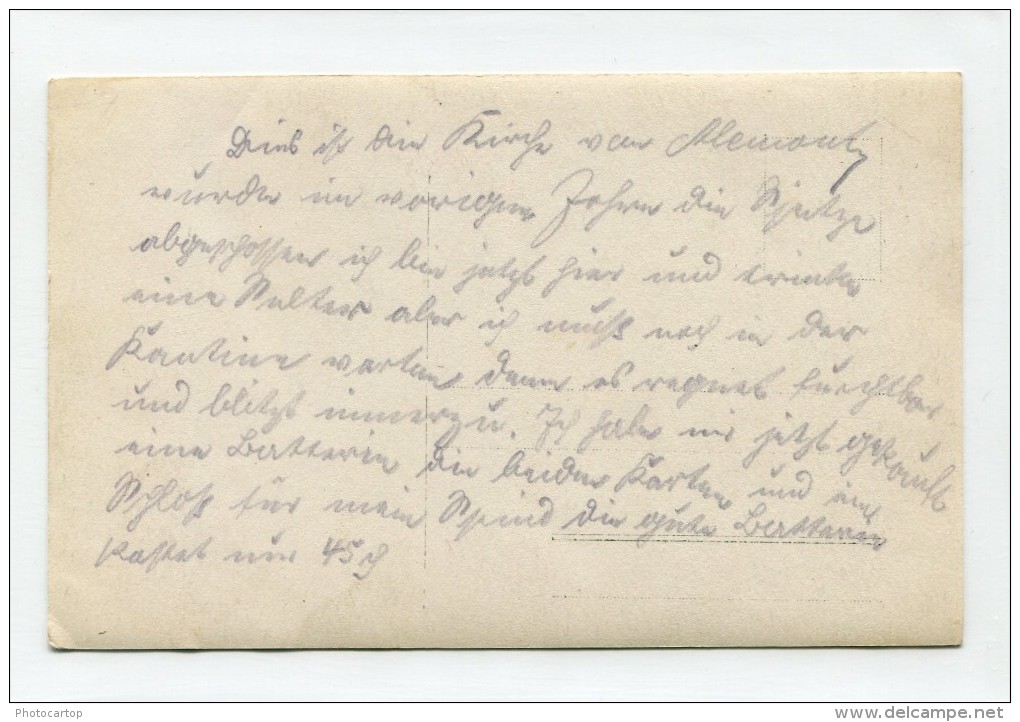 Dies ist die Kirche von Alemont,
wurde im vorigen Jahre die Spitze
abgeschossen ich bin jetzt hier und trinke
eine Selter aber ich muß noch in der
Kantine warten denn es regnet furchtbar
und blitzt immerzu. Ich habe mir jetzt gekauft
eine Batterie die beiden Karten und ein
Schloß für mein Spind die gute Batterie
kostet nur 45 ₰
Photocartop
http://www.delcampe.net